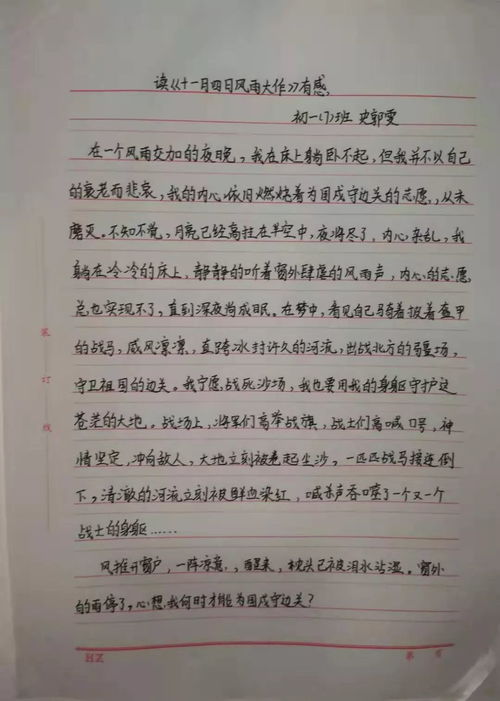 读《十一月四日风雨大作》有感
初一(7)班 史郭雯
在一个风雨交加的夜晚，我在床上躺卧不起，但我并不以自己
的衰老而悲哀，我的内心依旧燃烧着为国戍守边关的志愿，从未
磨灭。不知不觉，月亮已经高挂在半空中，夜将尽了，内心杂乱，我
躺在冷冷的床上，静静的听着窗外肆虐的风雨声，内心的志愿
总也实现不了，直到深夜尚成眠。在梦中，看见自己骑着披着盔甲
的战马，威风凛凛，直跨冰封许久的河流，出战北方的疆场，
守卫祖国的边关。我宁愿战死沙场，我也要用我的身躯守护这
苍茫的大地。战场上，将军们高举战旗，战士们高喊口号，神
情坚定，冲向敌人，大地立刻被卷起尘沙，一匹匹战马接连倒
下，清澈的河流立刻被鲜血染红，喊杀声吞噬了一个又一个
战士的身躯……
风推开窗户，一阵凉意，醒来，枕头已被泪水沾湿。窗外
的雨停了，心想我何时才能为国戍守边关？
装
订
线
HZ
第 页